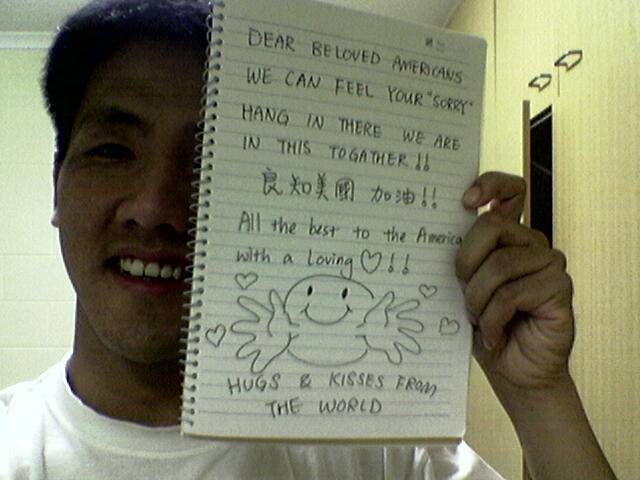 DEAR BELOVED AMERICANS
WE CAN FEEL YOUR "SORRY"
HANG IN THERE WE ARE
IN THIS TOGATHER !!
良知美國 加油!!
All the best to the America
with a Loving ♡!!
HUGS & KISSES FROM
THE WORLD